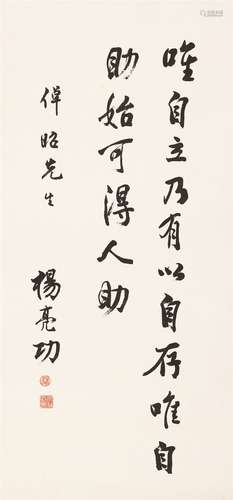 唯自立乃有以自存唯自
助始可得人助
倬昭先生
楊亮功